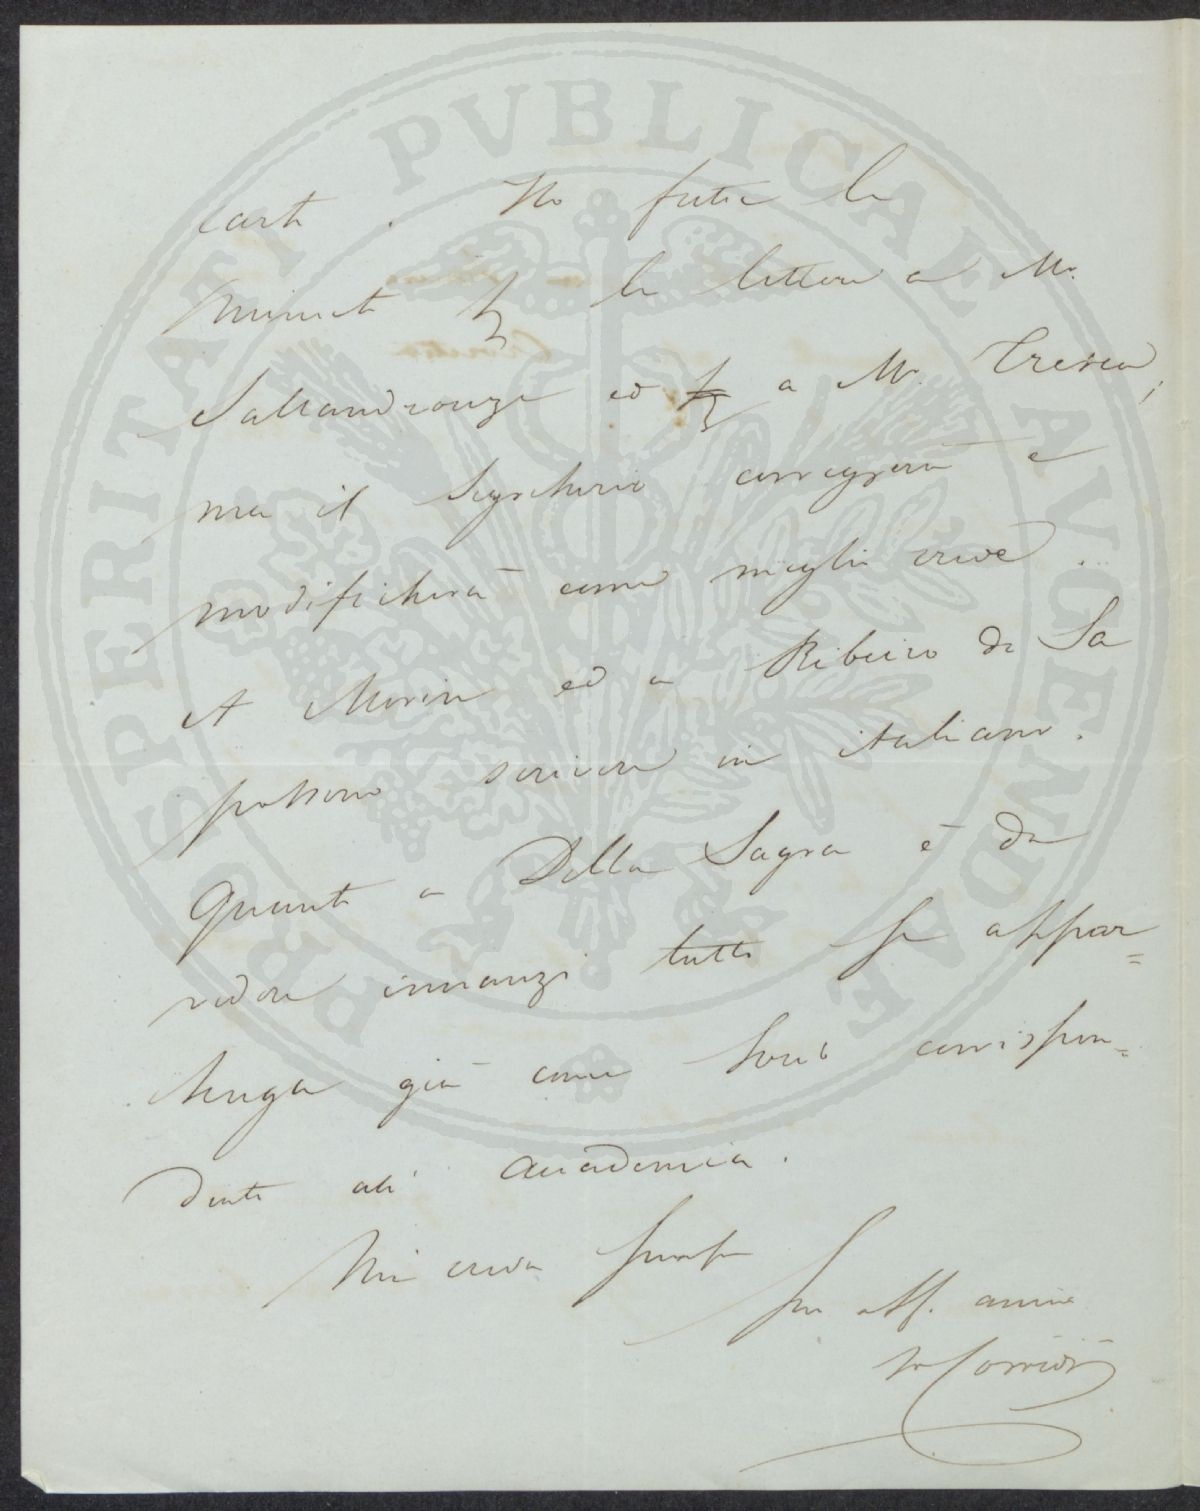 PROSPERITATI PVBLICAE AVGENDAE
carte. Ho fatto la
minuta per la lettera a Mr.
Sallandrouze ed per a Mr. Tresca,
ma il Segretario correggerà e
modificherà come meglio crede.
A Morin ed a Ribeiro de Sa
possono scrivere in italiano.
Quanto a Della Sagra è da
vedere innanzi tutto se appar=
tenga già come Socio corrispon=
dente all' Accademia.
Mi creda sempre
Suo aff. amico
Corridi